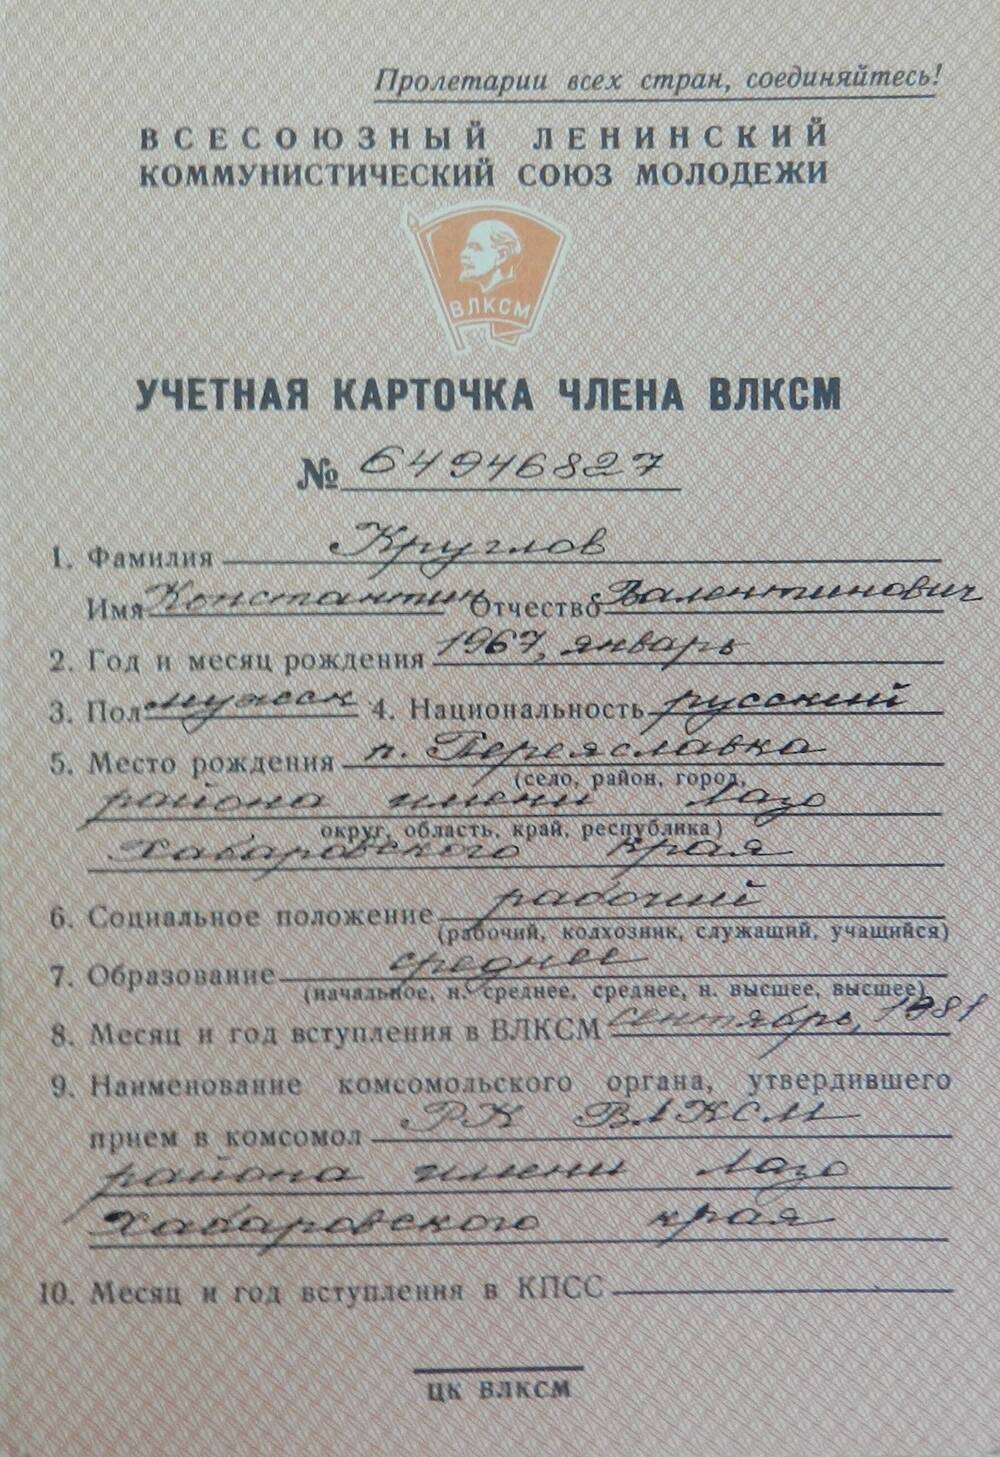 Пролетарии всех стран, соединяйтесь!
ВСЕСОЮЗНЫЙ ЛЕНИНСКИЙ
КОММУНИСТИЧЕСКИЙ СОЮЗ МОЛОДЕЖИ
ВЛКСМ
УЧЕТНАЯ КАРТОЧКА ЧЛЕНА ВЛКСМ
№ 64946827
1. Фамилия Круглов
Имя Константин Отчество Валентинович
2. Год и месяц рождения 1967, январь
3. Пол мужск 4. Национальность русский
5. Место рождения п. Переяславка
(село, район, город,
района имени Лазо
округ, область, край, республика)
Хабаровского края
6. Социальное положение рабочий
(рабочий, колхозник, служащий, учащийся)
7. Образование среднее
(начальное, н. среднее, среднее, н. высшее, высшее)
8. Месяц и год вступления в ВЛКСМ сентябрь, 1981
9. Наименование комсомольского органа, утвердившего
прием в комсомол РК ВЛКСМ
района имени Лазо
Хабаровского края
10. Месяц и год вступления в КПСС
ЦК ВЛКСМ